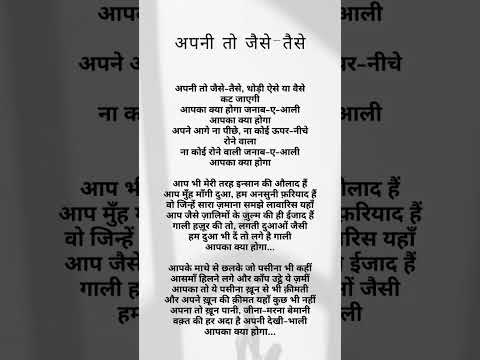 अपनी तो जैसे-तैसे
अपनी तो जैसे-तैसे, थोड़ी ऐसे या वैसे
कट जाएगी
आपका क्या होगा जनाब-ए-आली
आपका क्या होगा
अपने आगे ना पीछे, ना कोई ऊपर-नीचे
रोने वाला
ना कोई रोने वाली जनाब-ए-आली
आपका क्या होगा
आप भी मेरी तरह इन्सान की औलाद हैं
आप मुँह माँगी दुआ, हम अनसुनी फ़रियाद हैं
वो जिन्हें सारा ज़माना समझे लावारिस यहाँ
आप जैसे ज़ालिमों के ज़ुल्म की ही ईजाद हैं
गाली हज़ूर की तो, लगती दुआओं जैसी
हम दुआ भी दें तो लगे है गाली
आपका क्या होगा...
आपके माथे से छलके जो पसीना भी कहीं
आसमाँ हिलने लगे और काँप उट्ठे ये ज़मीं
आपका तो ये पसीना ख़ून से भी क़ीमती
और अपने ख़ून की क़ीमत यहाँ कुछ भी नहीं
अपना तो ख़ून पानी, जीना-मरना बेमानी
वक़्त की हर अदा है अपनी देखी-भाली
आपका क्या होगा...